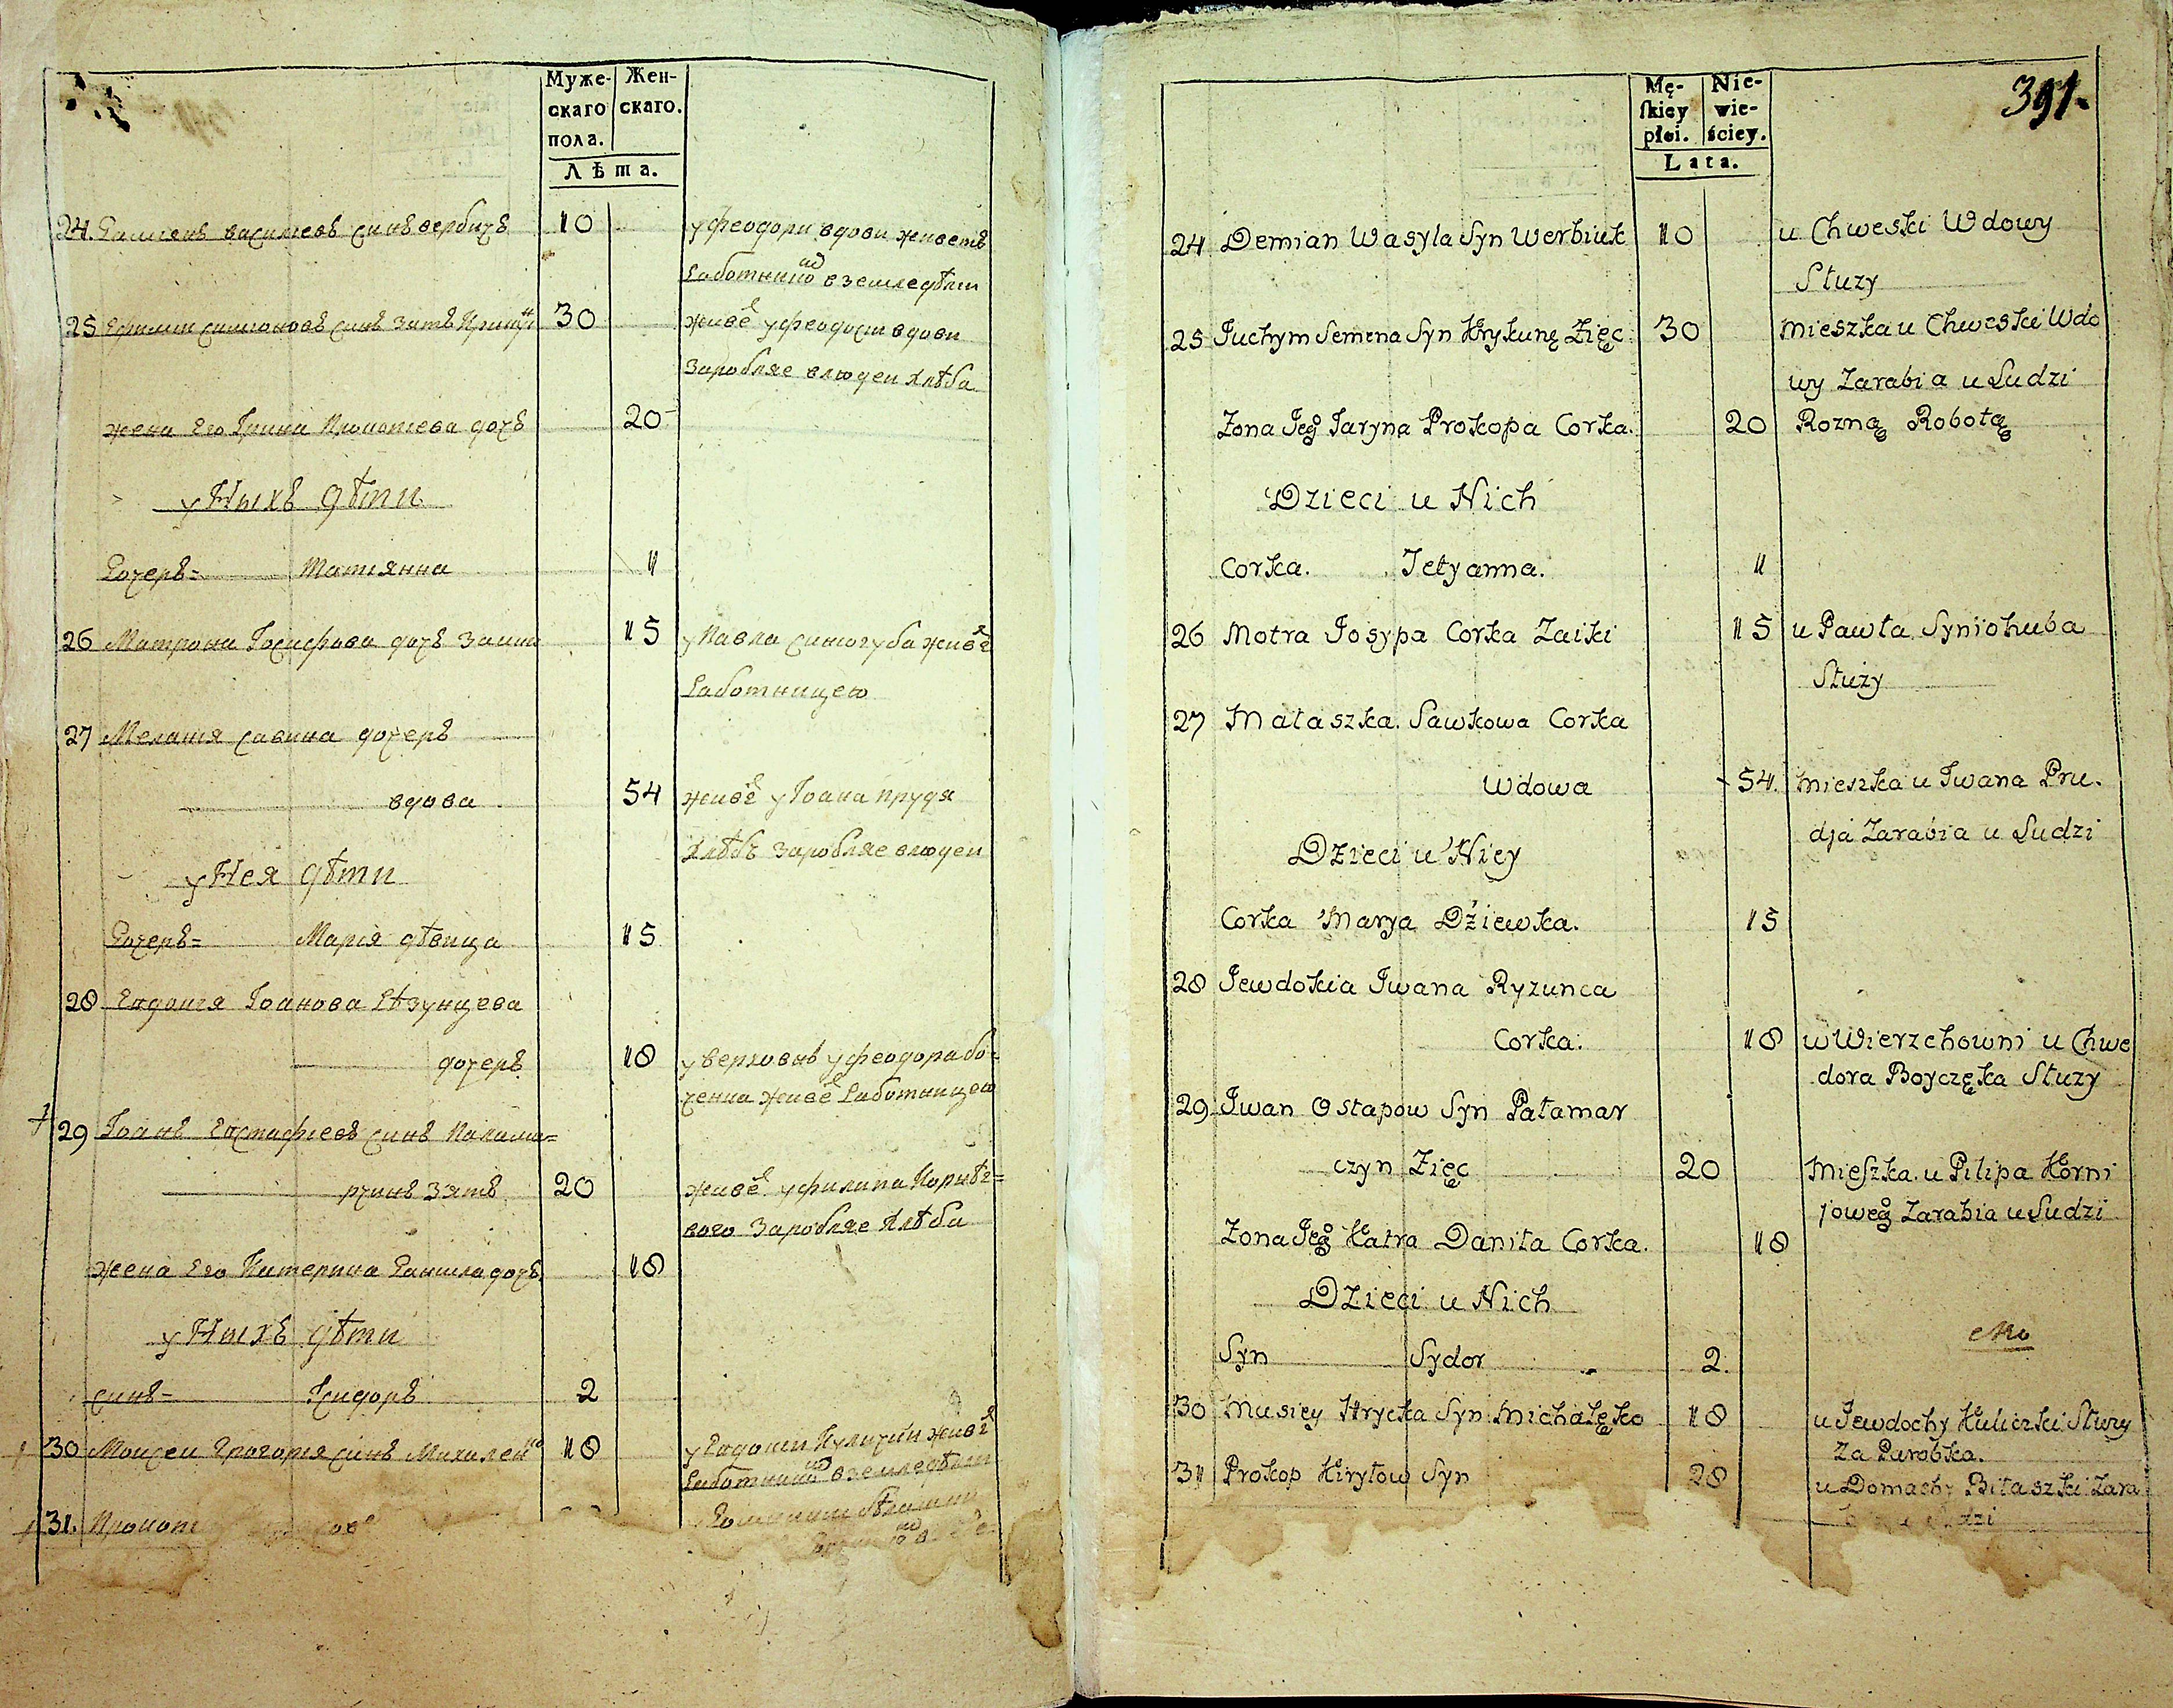 Муже-
скаго
пола.
Жен-
скаго.
Лѣта.
24. Дамиянъ василиевъ синъ вербюкъ 10 у феодори вдови живетъ
работником в земледѣли
25 Ефимии симионовъ синъ зять 30 живе у феодоси вдови
заробляе влюдеи хлѣба
жена Его Ірина Прокопиева дочъ 20
у Ныхъ дѣти
Дочеръ= Татиянна 1
26 Матрона Іосифова дочъ Заики 15 у Павла синогуба живе
работницею
27 Мелания савина дочеръ
вдова 54 живе у Іоана прудя
хлѣбъ заробляе влюдеи
у Нея дѣти
Дочеръ= Марія дѣвица 15
28 Евдокия Іоанова Рѣзунцева
дочеръ 18 у верховнѣ у феодора бо-
ченка живе работницею
29 Іоанъ Евстафиевъ синъ Палама=
рчинъ зять 20 живе у филипа Корнѣе=
вого заробляе хлѣба
жена Его Катерина Данила дочъ 18
у Ныхъ дѣти
синъ= Ісидоръ 2
30 Моисеи Григория синъ Михаленко 18 у Евдокии Кулички живе
работником в земледѣли
31. Прокоп
391.
Mę-
skiey
płci.
Nie-
wie-
ściey.
Lata.
24 Demian Wasyla Syn Werbiuk 10 u Chweski Wdowy
Słuzy
25 Juchym Semena Syn Krykunę Zięc 30 mieszka u Chweski Wdo
wy Zarabia u Ludzi
Zona Jeg° Jaryna Prokopa Corka. 20 Rozną Robotą
Dzieci u Nich
Corka. Tetyanna. 1
26 Motra Josypa Corka Zaiki 15 u Pawła Syniohuba
Służy
27 Małaszka Sawkowa Corka
Wdowa 54. mieszka u Iwana Pru.
dja Zarabia u Ludzi
Dzieci u Niey
Corka Marya Dźiewka. 15
28 Jewdokia Iwana Ryzunca
Corka. 18 w Wierzchowni u Chwe
dora Boyczęka Słuzy
29 Iwan Ostapow Syn Pałamar
czyn Zięc 20 Mieszka u Pilipa Korni
joweg° Zarabia u Ludzi
Zona Jeg° Katra Daniła Corka. 18
Dzieci u Nich
Syn Sydor 2
30 Musiey Hrycka Syn Michalęko 18 u Jewdochy Kuliczki Słuzy
Za Parobka.
31 Prokop Kiryłow Syn 28 u Domachy Biłaszki Zara